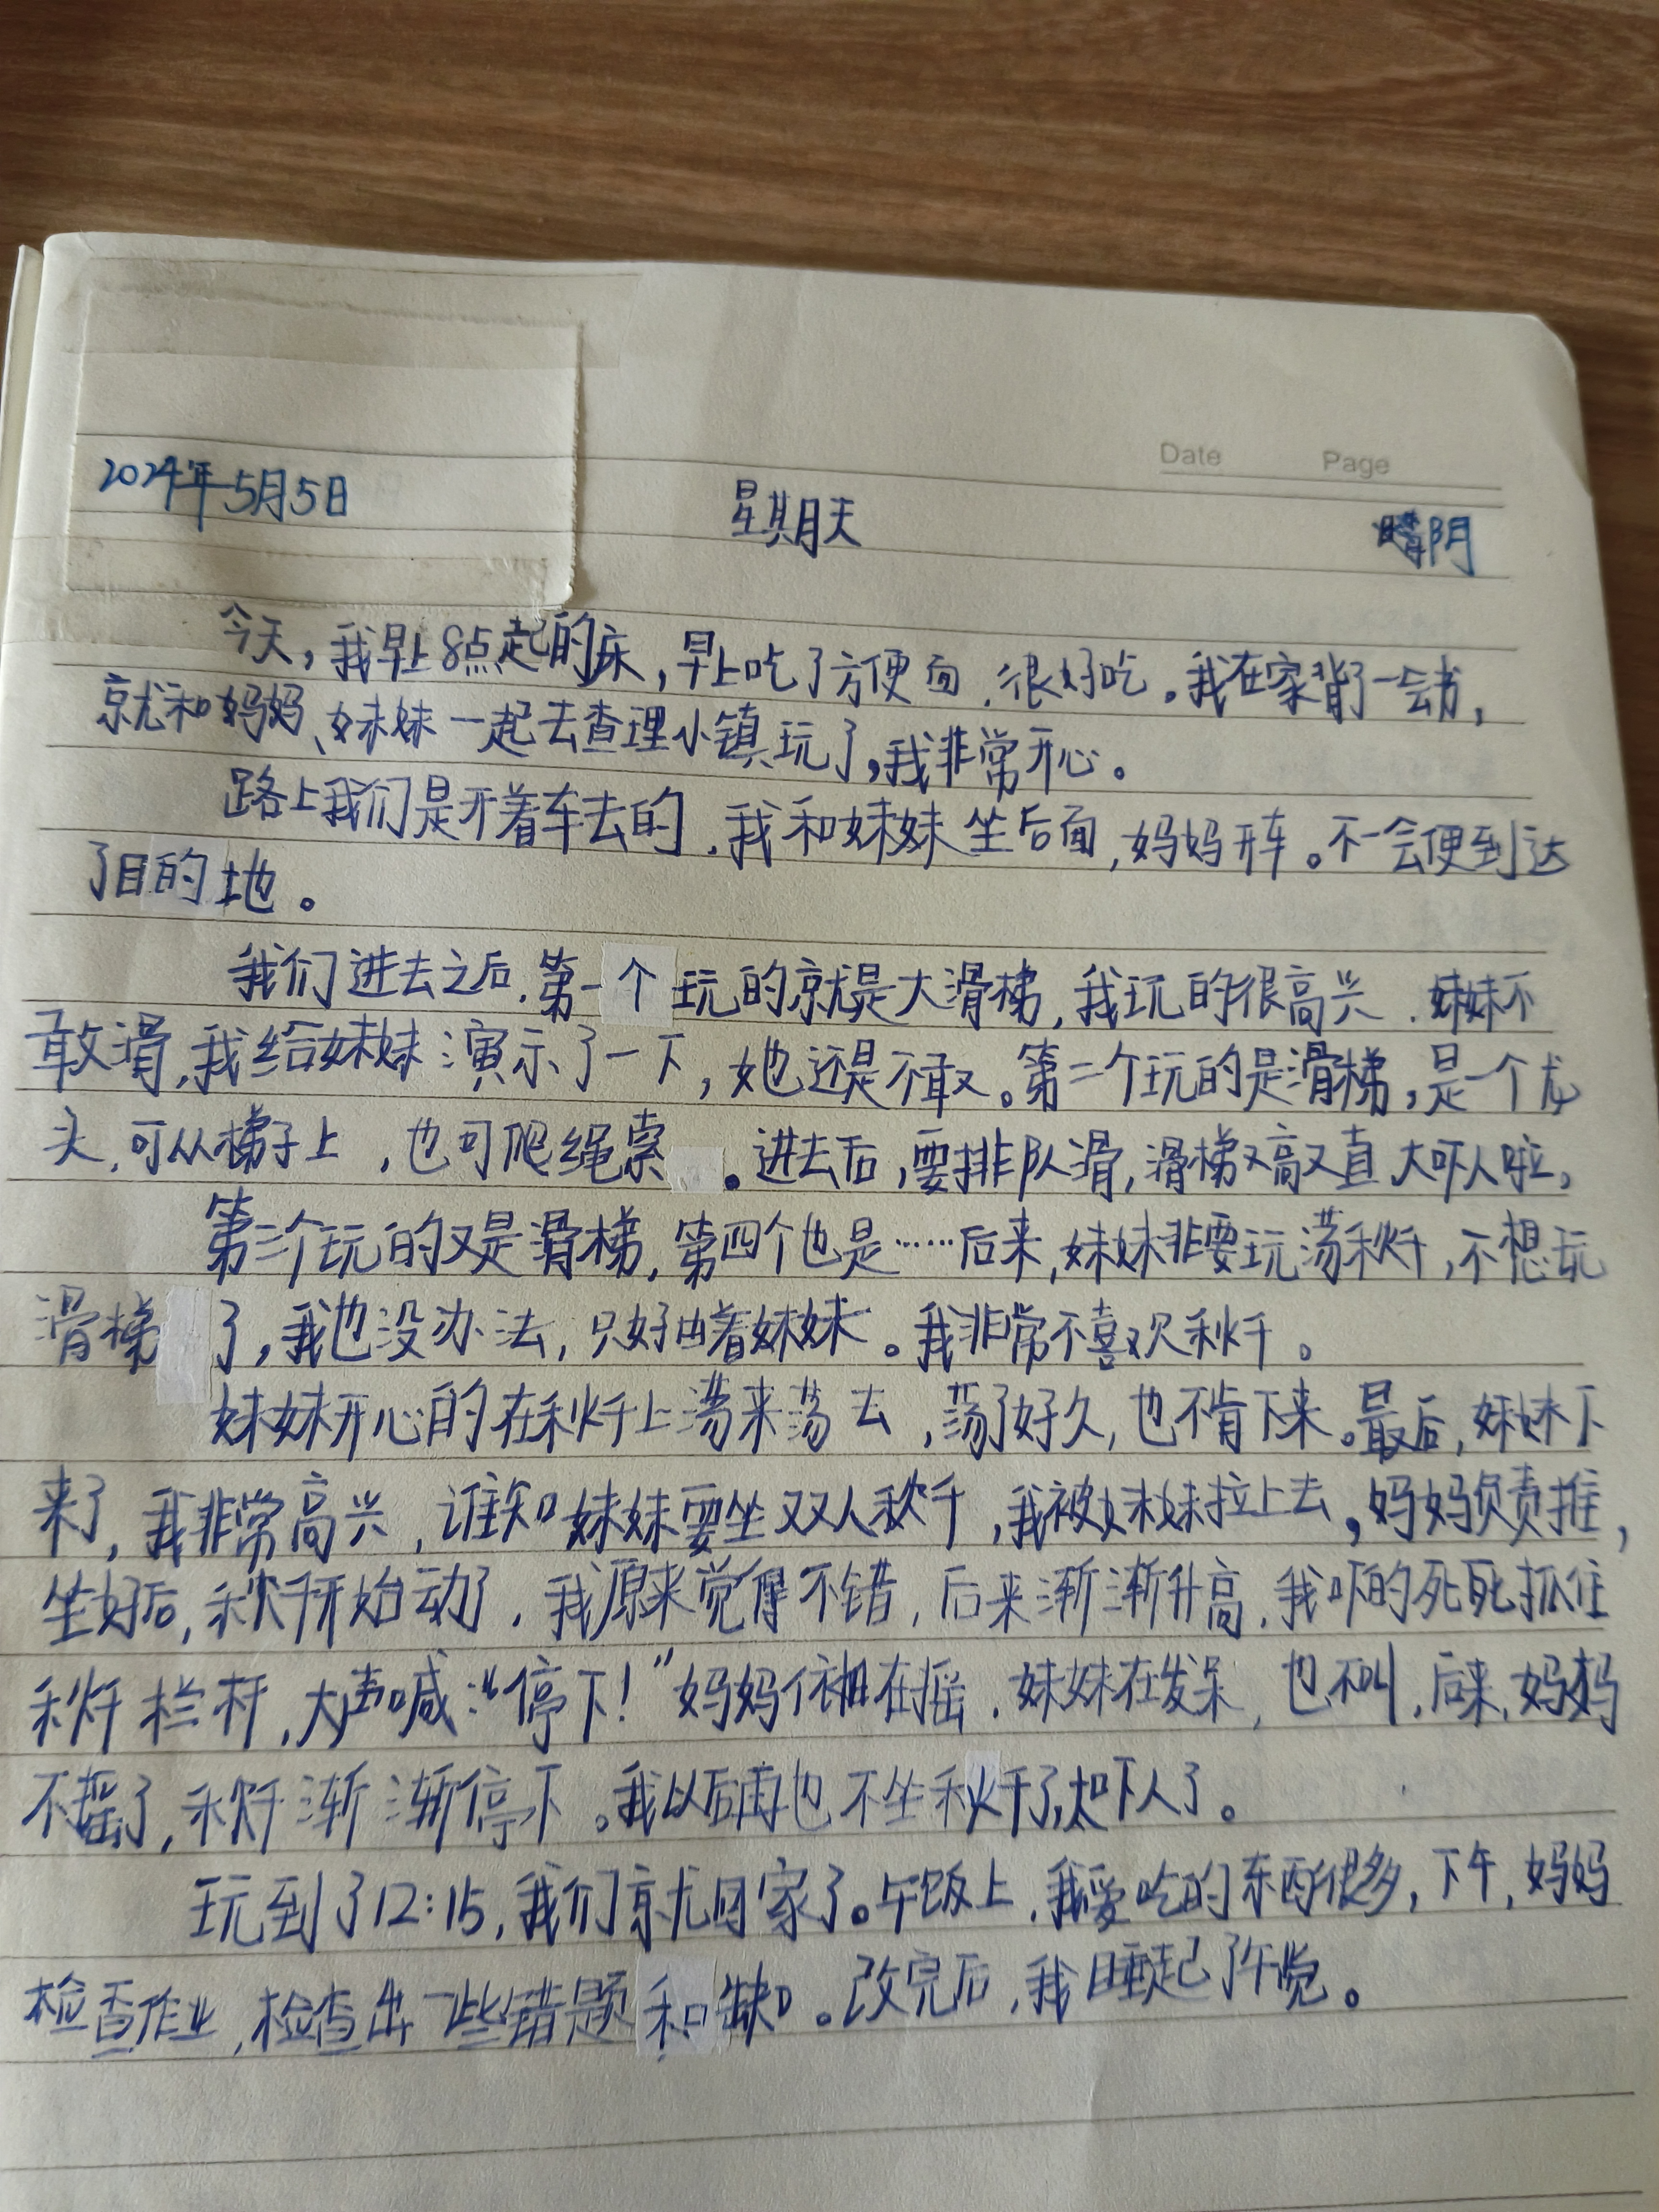 Date Page
2024年5月5日 星期天 晴阴
今天,我早上8点起的床,早上吃了方便面,很好吃。我在家背了一会书,
就和妈妈、妹妹一起去查理小镇玩了,我非常开心。
路上我们是开着车去的,我和妹妹坐后面,妈妈开车。不一会便到达
了目的地。
我们进去之后,第一个玩的就是大滑梯,我玩的很高兴,妹妹不
敢滑,我给妹妹演示了一下,她还是不敢。第二个玩的是滑梯,是一个龙
头,可从梯子上,也可爬绳索。进去后,要排队滑,滑梯又高又直,大吓人啦,
第三个玩的又是滑梯,第四个也是……后来,妹妹非要玩荡秋千,不想玩
滑梯了,我也没办法,只好由着妹妹。我非常不喜欢秋千。
妹妹开心的在秋千上荡来荡去,荡了好久,也不肯下来。最后,妹妹下
来了,我非常高兴,谁知妹妹要坐双人秋千,我被妹妹拉上去,妈妈负责推,
坐好后,秋千开始动了,我原来觉得不错,后来渐渐升高,我吓的死死抓住
秋千栏杆,大声喊:“停下!”妈妈依旧在摇,妹妹在发呆,也不叫,后来,妈妈
不摇了,秋千渐渐停下。我以后再也不坐秋千了,太吓人了。
玩到了12:15,我们就回家了。午饭上,我爱吃的东西很多,下午,妈妈
检查作业,检查出一些错题和缺口。改完后,我睡起了午觉。